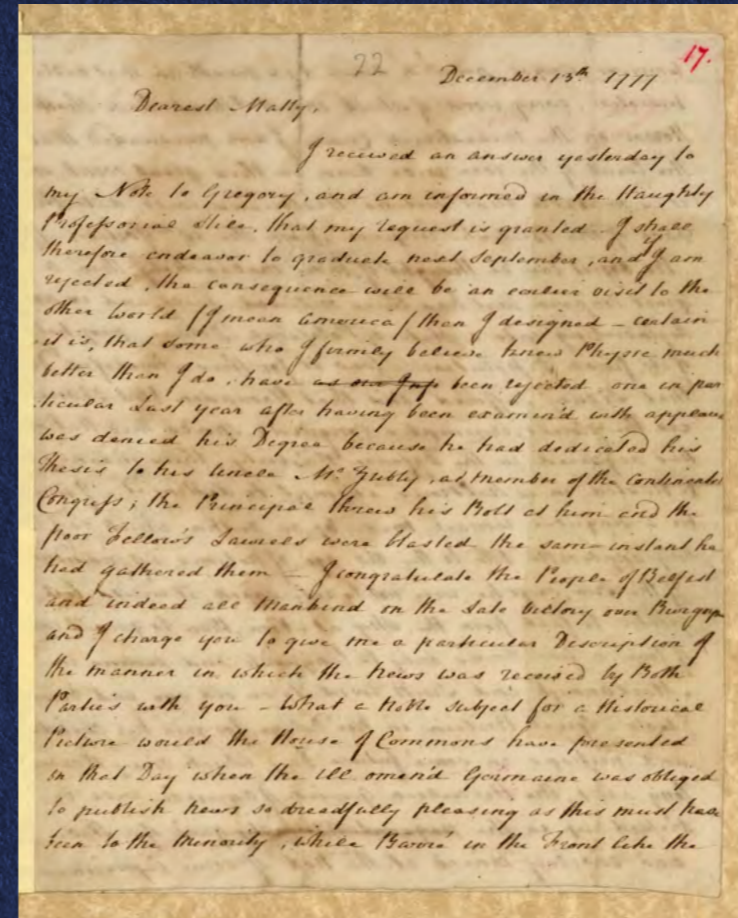 17.
22
December 13th 1777
Dearest Matty,
I received an answer yesterday to
my Note to Gregory, and am informed in the Haughty
Professorial Stile, that my request is granted. I shall
therefore endeavor to graduate next September, and if I am
rejected, the consequence will be an earlier visit to the
other World (I mean America) than I designed – certain
it is, that some who I firmly believe knew Physic much
better than I do, have been rejected one in par
ticular Last year after having been examin'd with applause
was denied his Degree because he had dedicated his
Thesis to his Uncle Mr Zubly, a member of the Continental
Congress; the Principal threw his Bolt at him and the
poor Fellow's Laurels were blasted the same instant he
had gathered them – I congratulate the People of Belfast
and indeed all Mankind on the late Victory over Burgoyne
and I charge you to give me a particular Discription of
the manner in which the News was received by Both
Parties with you – What a Noble subject for a Historical
Picture would the House of Commons have presented
on that Day when the ill omen'd Germaine was obliged
to publish News so dreadfully pleasing as this must have
been to the Minority, while Barré in the Front like the